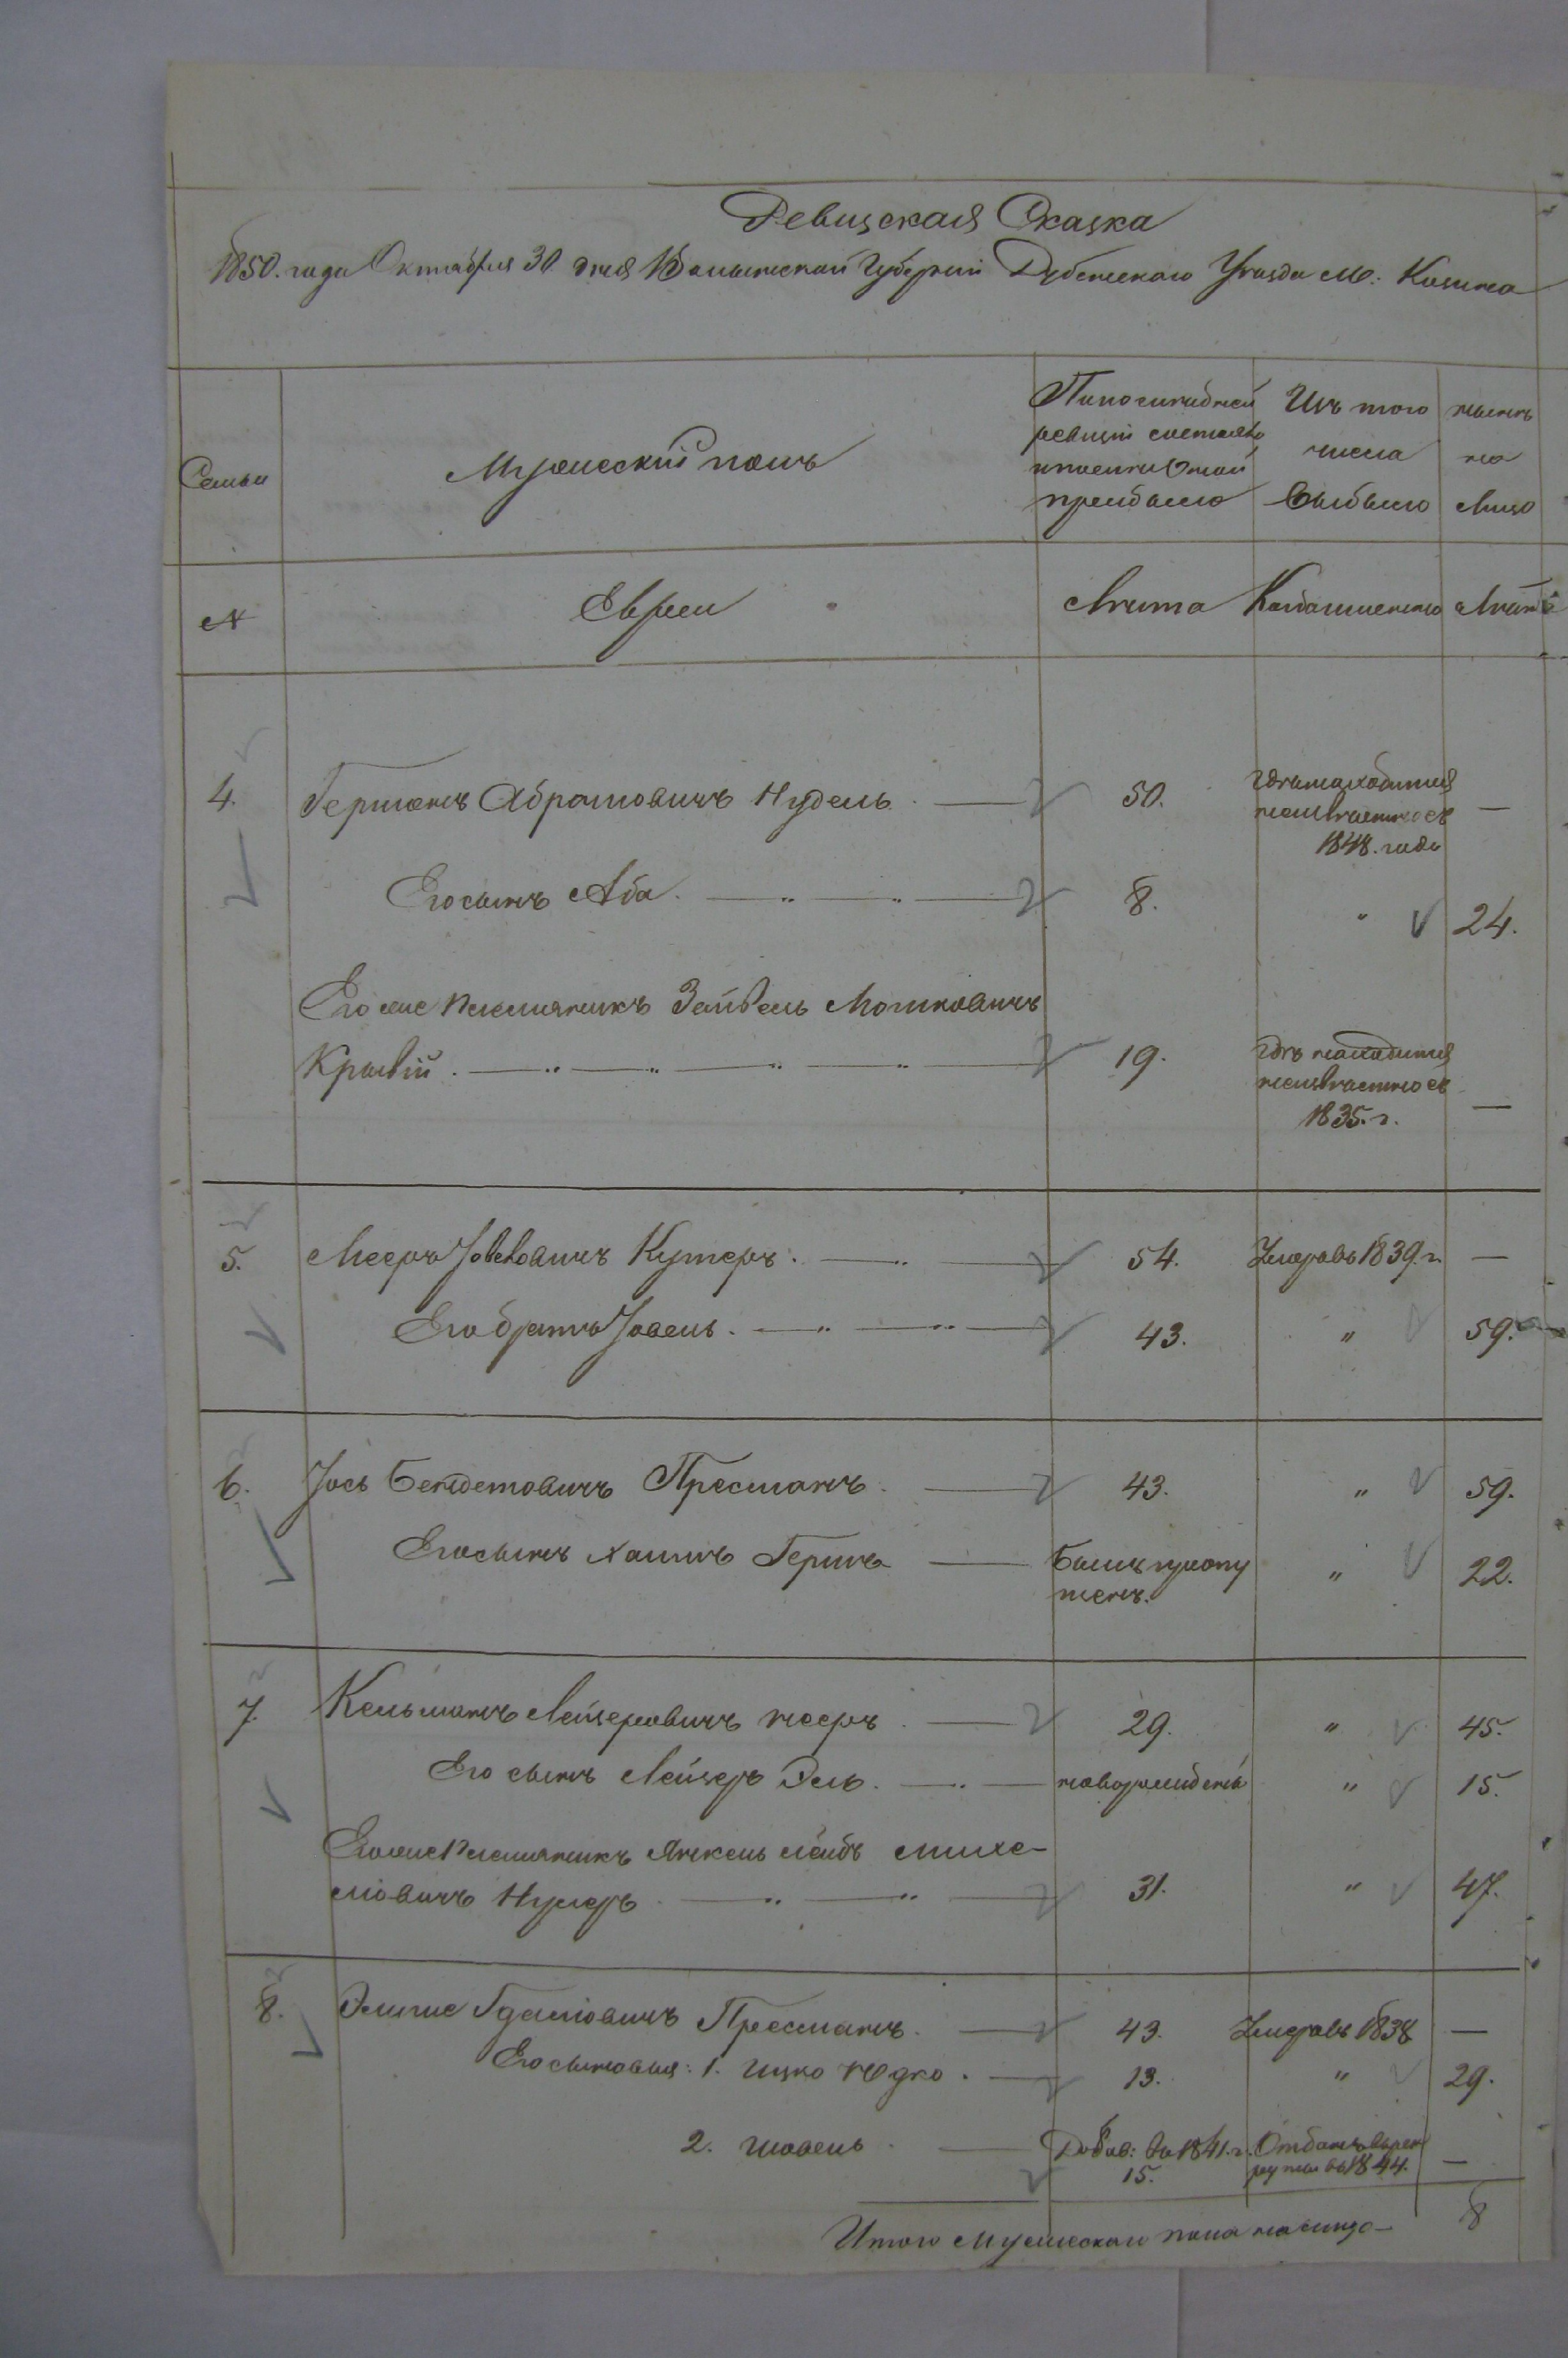 Ревизская Сказка
1850. года Октября 30 дня Волынской Губерніи Дубенскаго Уѣзда М: Козина
Семьи
Мужескій полъ
По последней ревизіи состояло и после оной прибыло
Изъ того числа выбыло
нынѣ на лицо
N
Евреи
Лѣта
Когда именно
Лѣта
4. Германъ Абрамовичъ Нудель. — 50. Гдѣ находится неизвѣстно съ 1848. года —
Его сынъ Аба. — „ — „ — 8. „ 24.
Его же племяникъ Зайдель Мошковичъ
Крывій. — „ — „ — „ — „ — 19. Гдѣ находится неизвѣстно съ 1835. г. —
5. Мееръ Іовелевичъ Кутеръ. — „ — 54. Умеръ въ 1839. г. —
Его братъ Іовель. — „ — „ — 43. „ 59.
6. Іось Бендетовичъ Пресманъ. — 43. „ 59.
Его сынъ Хаимъ Гершъ — Былъ пропущенъ. „ 22.
7. Кельманъ Лейзеровичъ — 29. „ 45.
Его сынъ Лейзеръ Эль. — „ — новорожденый „ 15.
Его же племяникъ Янкель Лейбъ Михе-
лiовичъ — „ — „ — 31. „ 47.
8. Элише Гдаліовичъ Пресманъ. — 43. Умеръ въ 1838 —
Его сыновья: 1. Ицко Юдко. — 13. „ 29.
2. Шовель. — Добав: въ 1841. г. 15. Отданъ въ рекруты въ 1844. —
Итого мужескаго пола на лицо — 8